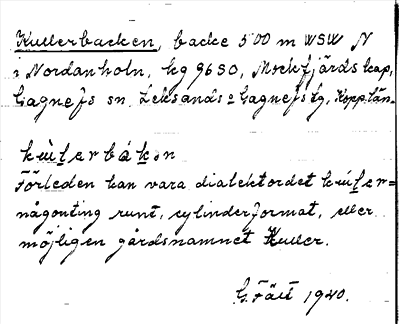 Kullerbacken, backe 500 m WSW N
i Nordanholn, kg 9650, Mockfjärds kap,
Gagnefs sn. Leksands o Gagnefs tg, Kopp.län.
kùl̲erbák̲n
Förleden kan vara dialektordet kùl̲er=
någonting runt, cylinderformat, eller
möjligen gårdsnamnet Kuller.
G. Fält 1940.